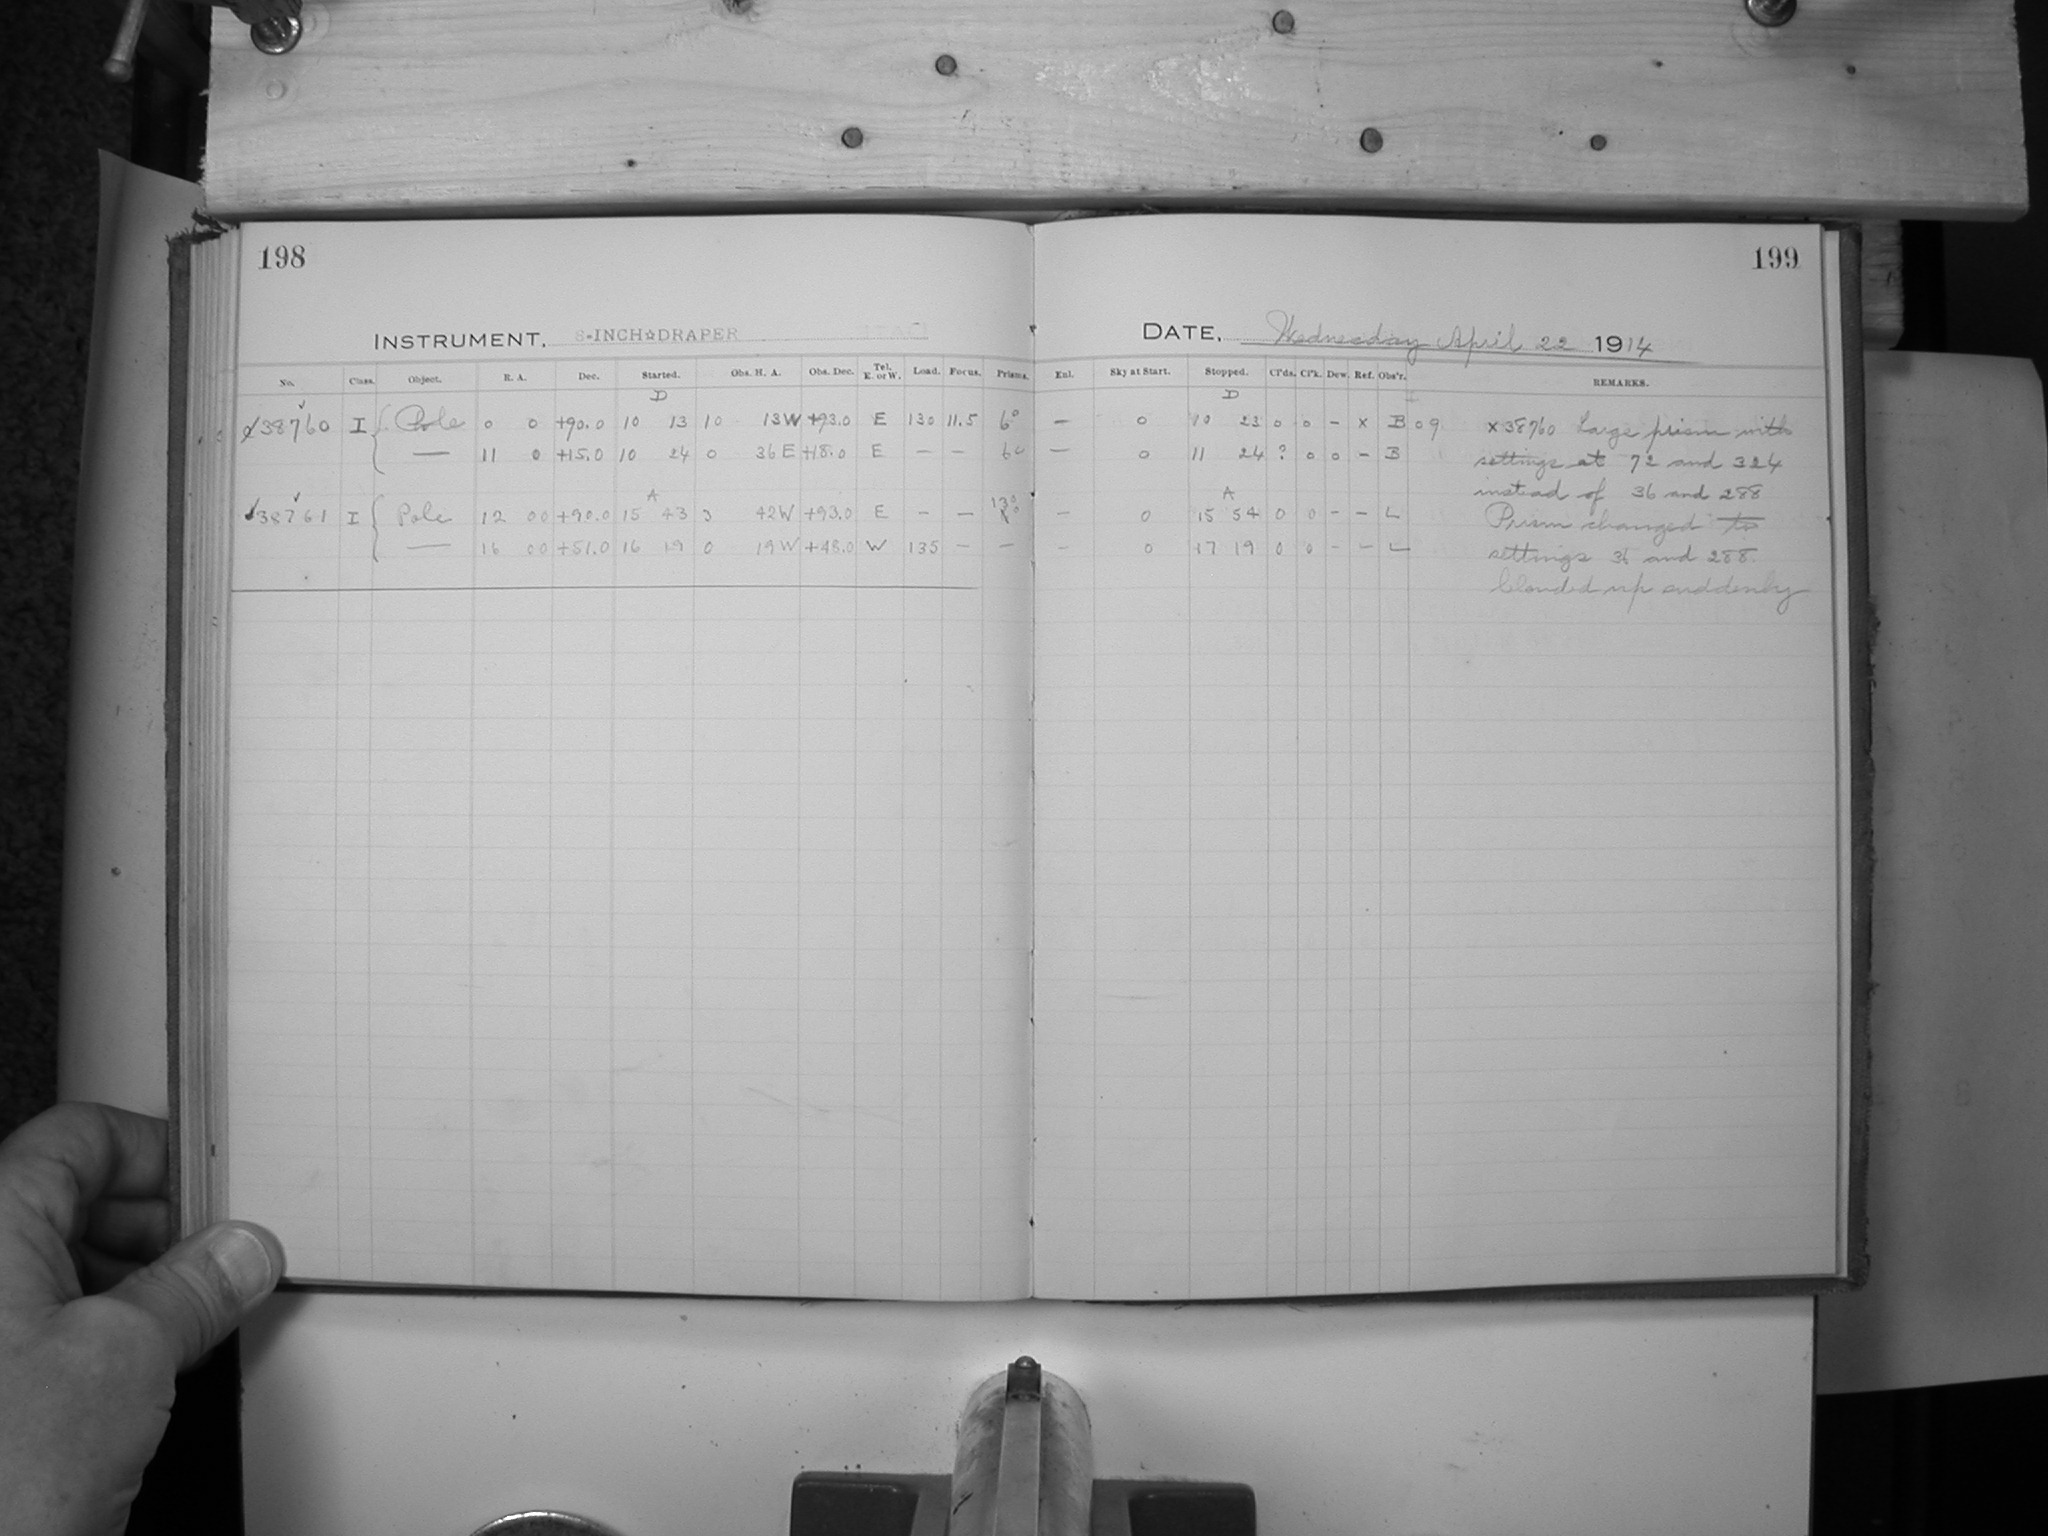 198
199
INSTRUMENT, 8-INCH☆DRAPER
DATE, Wednesday April 22 1914
No. Class. Object. R. A. Dec. Started. Obs. H. A. Obs. Dec. Tel. E. or W. Load. Focus. Prisms. Enl. Sky at Start. Stopped. Cl'ds. Cl'k. Dew. Ref. Obs'r. REMARKS.
D D
38760 I Pole 0 0 +90.0 10 13 10 13W +93.0 E 130 11.5 6° — 0 10 23 0 0 - x B 09 x 38760 Large prism with
— 11 0 +15.0 10 24 0 36 E +18.0 E — — 6° — 0 11 24 ? 0 0 - B settings at 72 and 324
instead of 36 and 288
A 13° A
38761 I Pole 12 00 +90.0 15 43 3 42W +93.0 E — — — 0 15 54 0 0 - - L Prism changed to
— 16 00 +51.0 16 19 0 19 W +48.0 W 135 — — — 0 17 19 0 0 - - L settings 36 and 288.
Clouded up suddenly